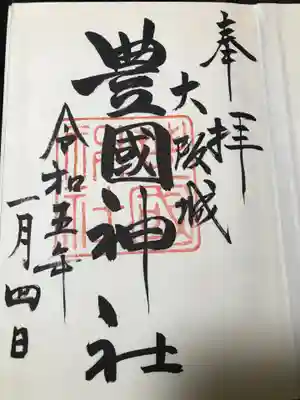 奉拝
大阪城
豊國神社
令和五年
一月四日